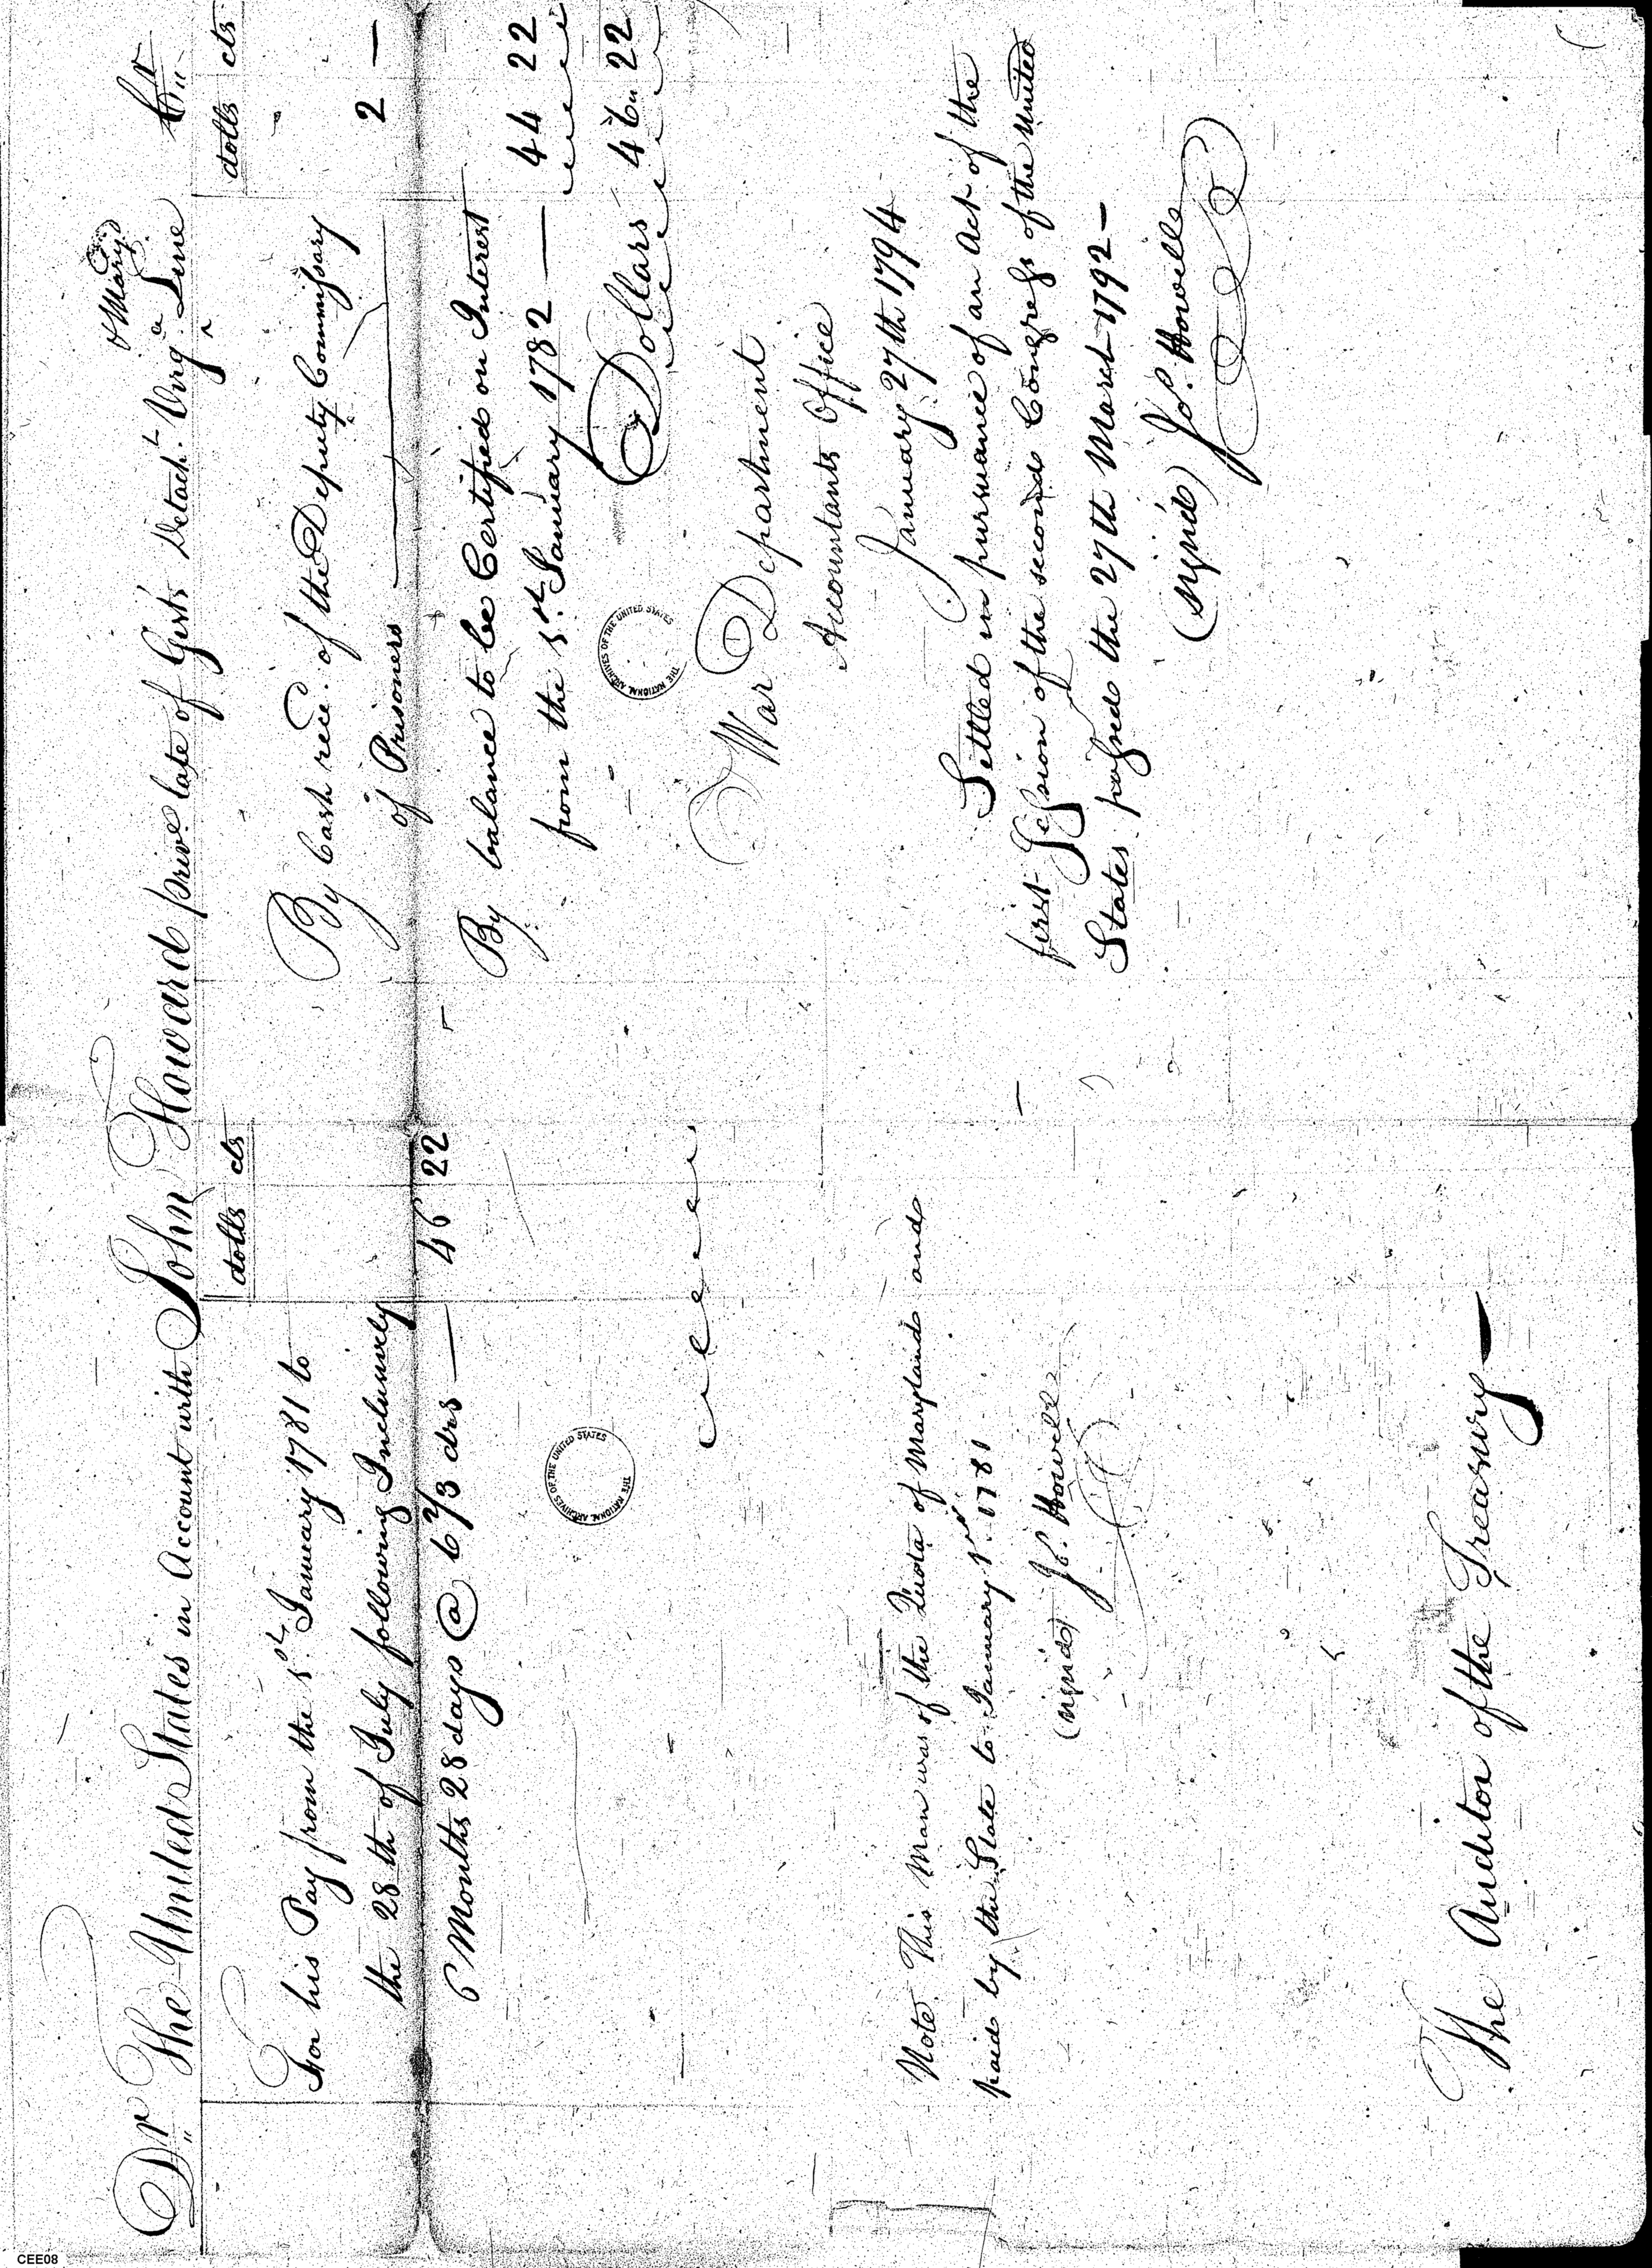 Dr The United States in Account with John Howard priv.e late of Gist's Detach.t Virg.a Line Cr
& Mary.d
dolls cts
For his Pay from the 1.st January 1781 to
the 28th of July following Inclusively
6 Months 28 days @ 6 2/3 drs — 46 22
Note. This Man was of the Quota of Maryland and
paid by the State to January 1.st 1781
(signed) Jo. Howell
The Auditor of the Treasury —
dolls cts
By Cash rece.d of the Deputy Commissary
of Prisoners — 2 —
By balance to be Certified on Interest
from the 1.st January 1782 — 44 22
Dollars 46 22
War Department
Accountants Office
January 27th 1794
Settled in pursuance of an Act of the
first Session of the second Congress of the United
States passed the 27th March 1792 —
(signed) Jo. Howell
THE NATIONAL ARCHIVES OF THE UNITED STATES
THE NATIONAL ARCHIVES OF THE UNITED STATES
CEE08